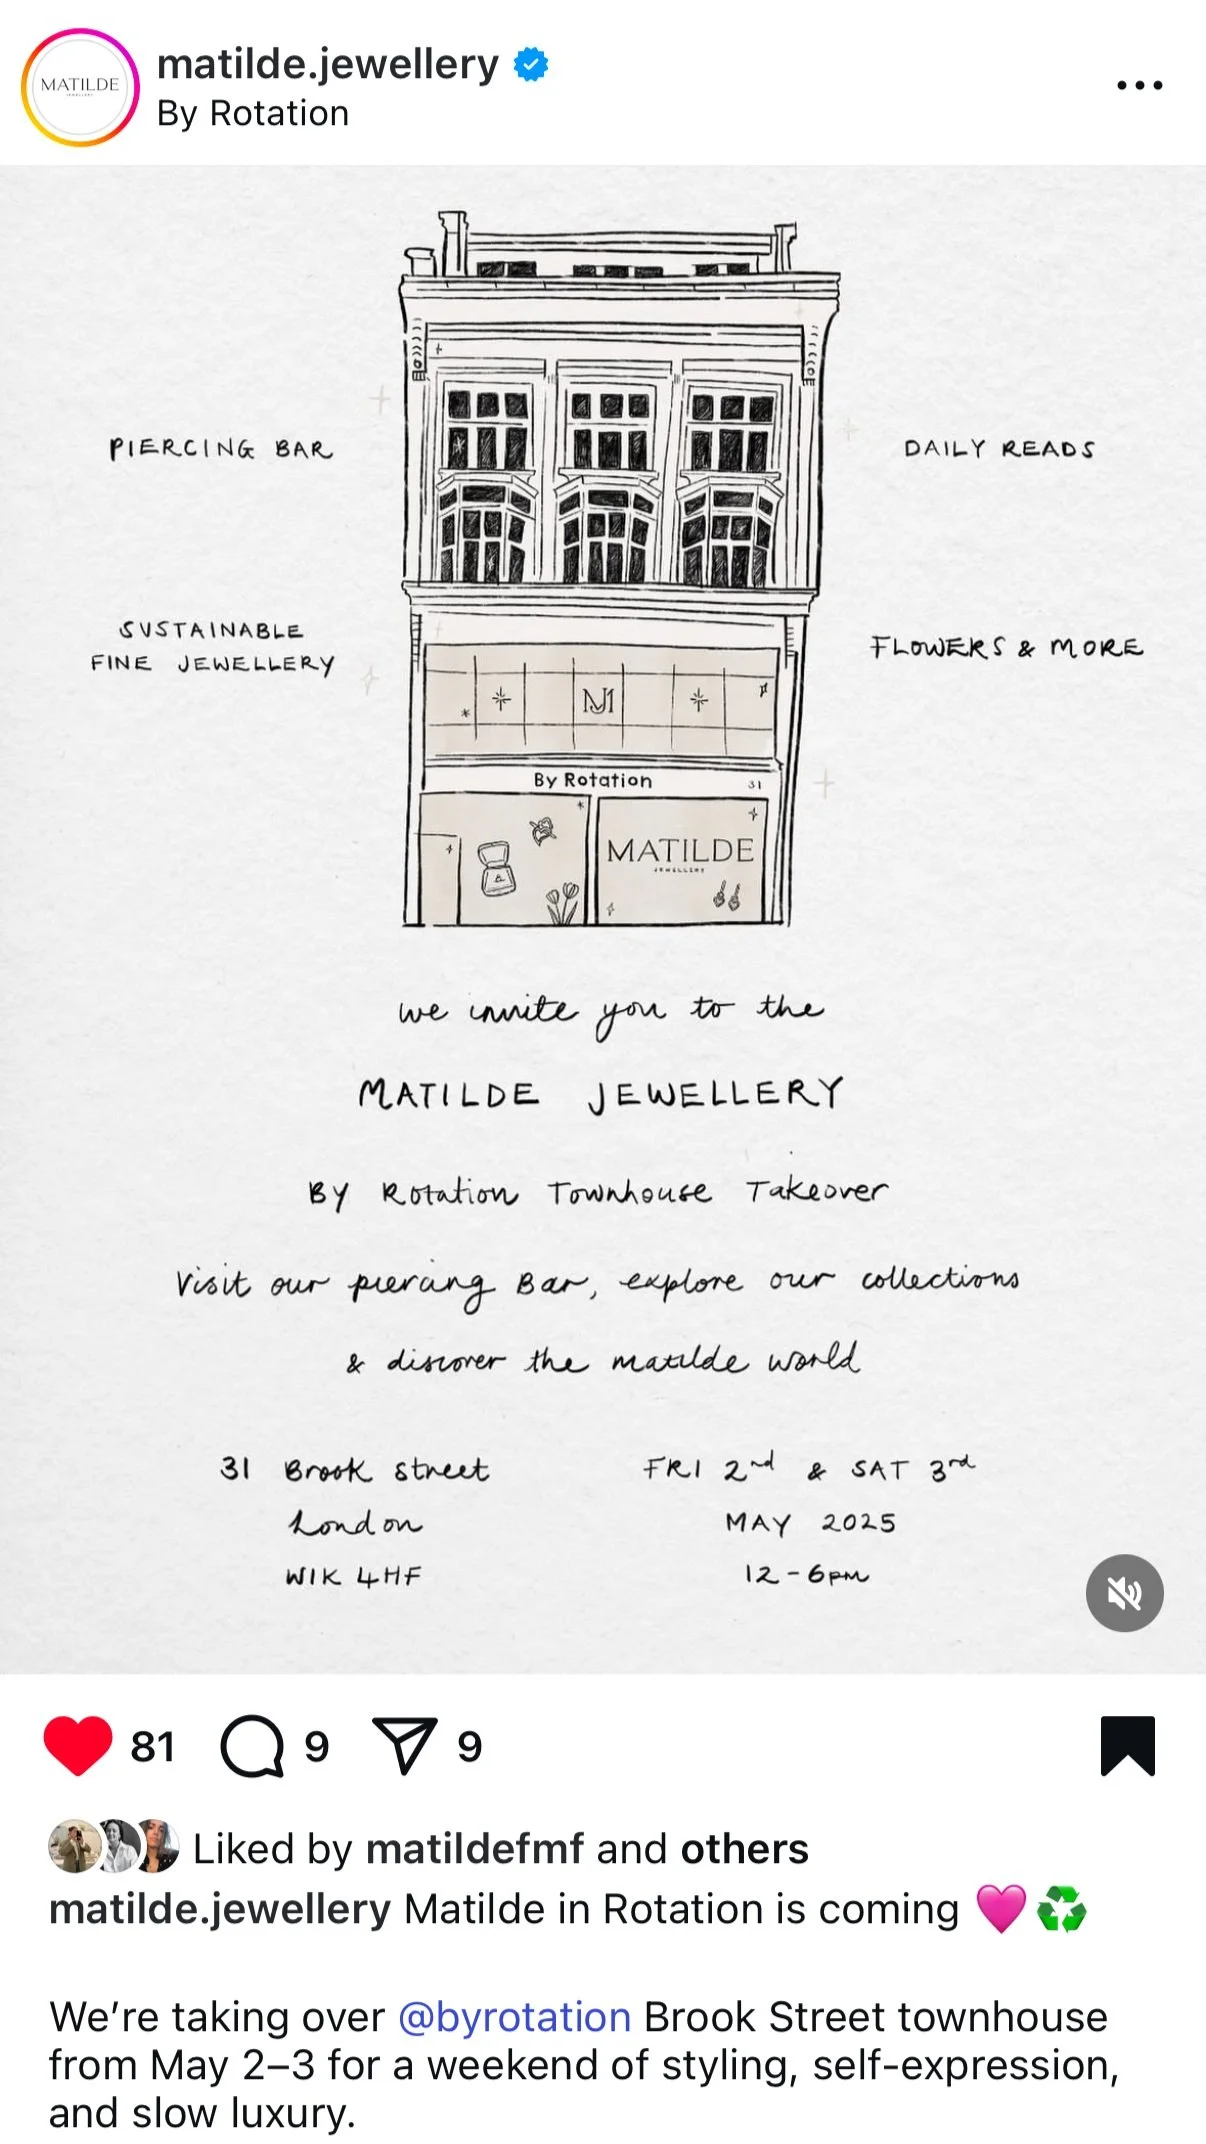 MATILDE
JEWELLERY
matilde.jewellery
By Rotation
PIERCING BAR
DAILY READS
SUSTAINABLE
FINE JEWELLERY
FLOWERS & MORE
MJ
By Rotation
31
MATILDE
JEWELLERY
we invite you to the
MATILDE JEWELLERY
BY Rotation Townhouse Takeover
Visit our piercing Bar, explore our collections
& discover the matilde world
31 Brook street
London
W1K 4HF
FRI 2nd & SAT 3rd
MAY 2025
12-6pm
81 9 9
Liked by matildefmf and others
matilde.jewellery Matilde in Rotation is coming 🩷♻️
We’re taking over @byrotation Brook Street townhouse
from May 2–3 for a weekend of styling, self-expression,
and slow luxury.